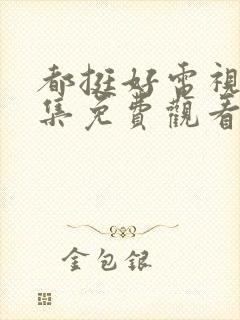 都挺好電視
集免費觀看
金包銀